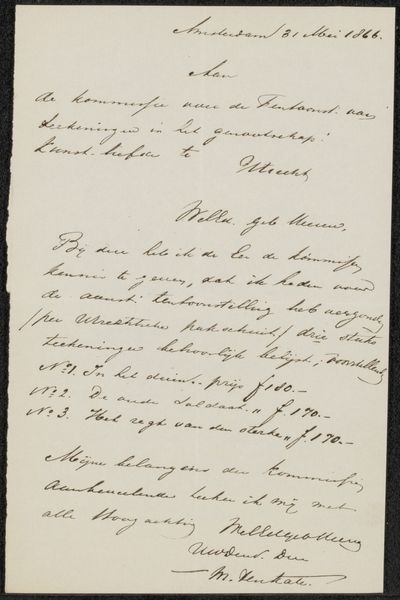 Amsterdam 31 Mei 1866.
Aan
de kommissie voor de Tentoonst. van
teekeningen in het genootschap:
Kunst-liefde te
Utrecht
WelEd. geb Heeren,
Bij deze heb ik de Eer de kommissie
kennis te geven, dat ik heden voor
de aanst. tentoonstelling heb verzonden
/per Utrechtsche pakschuit/ drie stuks
teekeningen behoorlijk belijst, voorstellende
No 1. In het duin. prijs f 180.-
No 2. De oude soldaat. " f. 170.-
No 3. Het regt van den sterkste " f. 170.-
Mijne belangens der kommissie
aanbevelende teeken ik mij met
alle Hoogachting WelEdelgeb Heeren
Uwdent. Dien
M. Tenkate.